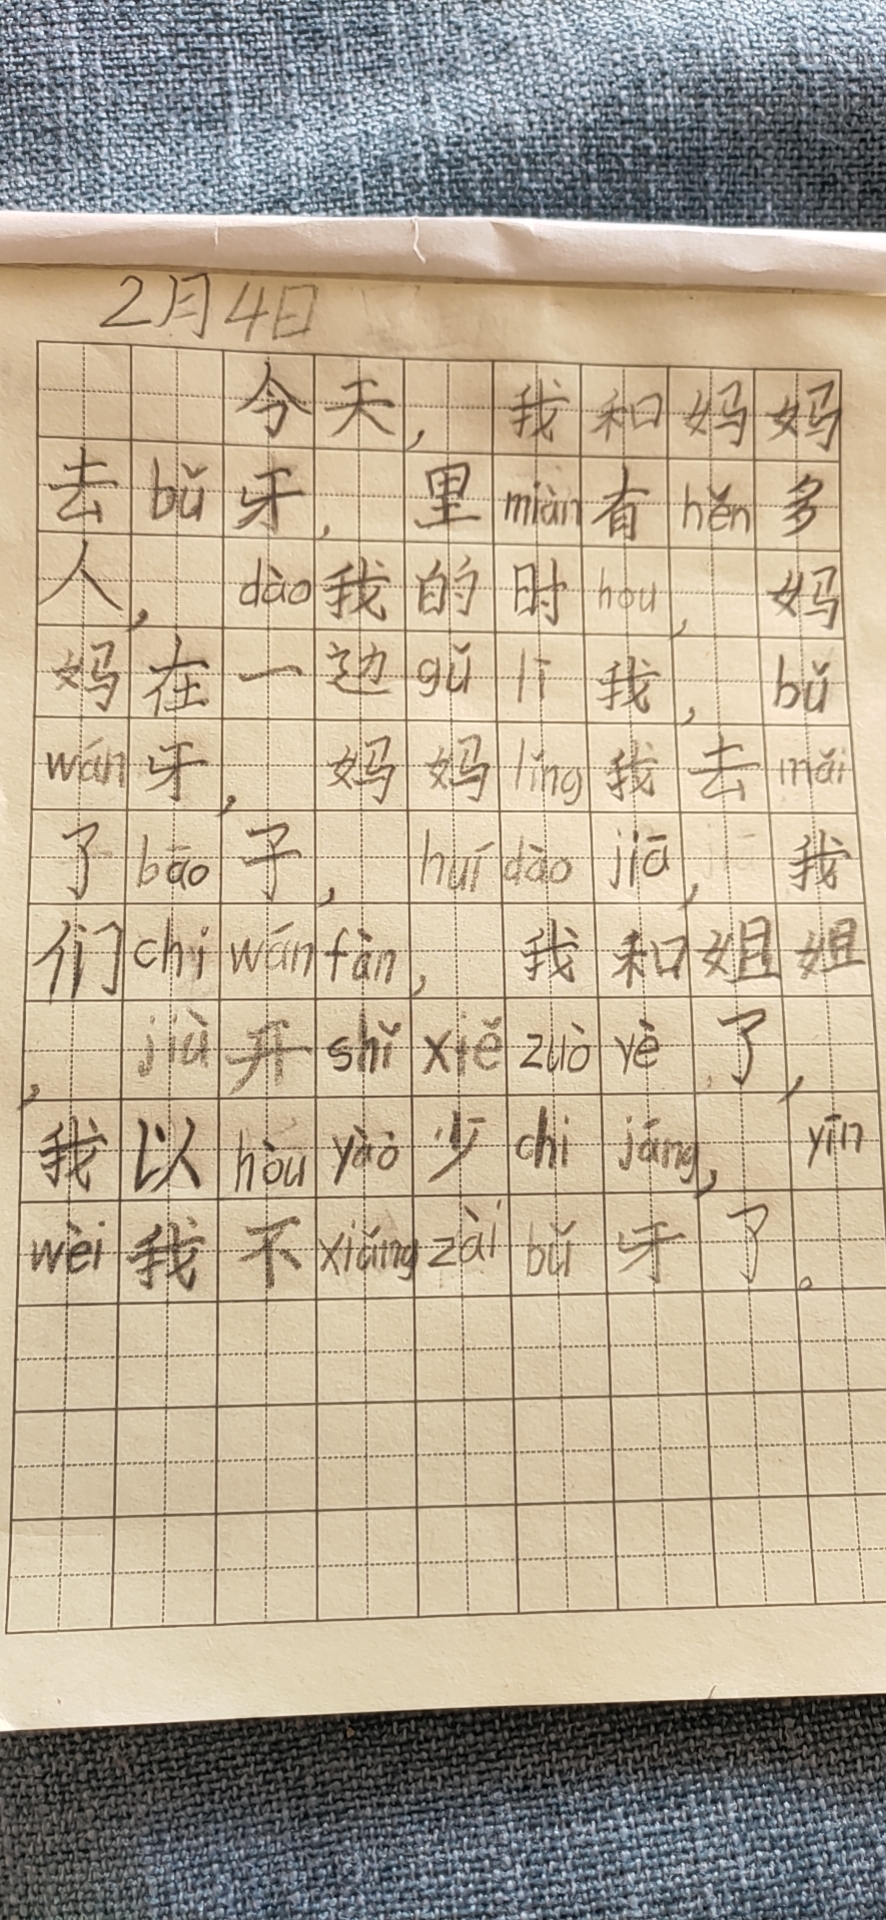 2月4日
今天，我和妈妈
去bǔ牙，里miàn有hěn多
人，dào我的时hou，妈
妈在一边gǔ lī我，bǔ
wán牙，妈妈lǐng我去mǎi
了bāo子，huí dào jiā，我
们chi wán fàn，我和姐姐
，jiù开shǐ xiě zuò yè了，
我以hòu yào少chi jāng，yīn
wèi我不xiǎng zài bǔ牙了。